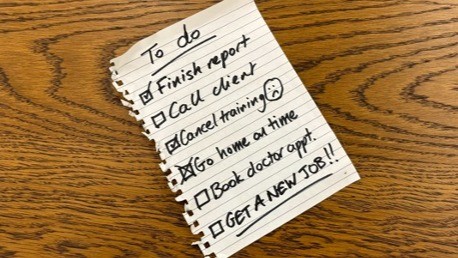 To do
Finish report
Call client
Cancel training
Go home on time
Book doctor appt.
GET A NEW JOB!!